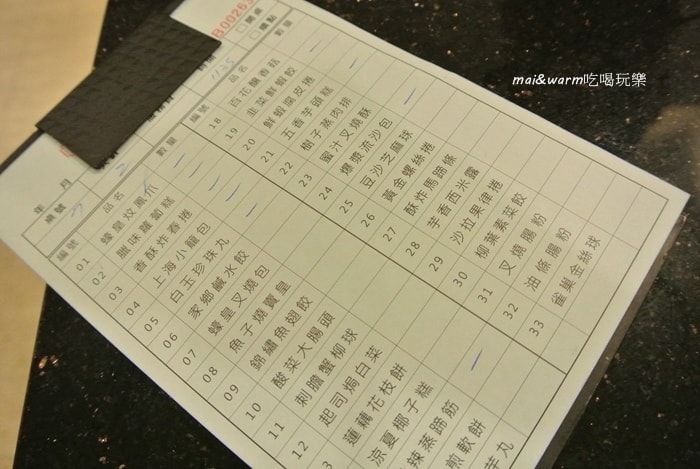 mai&warm吃喝玩樂
B0026
年 月
編號
編號 品名 數量
01 蠔皇炆鳳爪
02 臘味蘿蔔糕
03 香酥炸春捲
04 上海小饅包
05 白玉珍珠丸
06 家鄉鹹水餃
07 蠔皇叉燒包
08 魚子燒賣皇
09 錦繡魚翅餃
10 酸菜大腸頭
11 刺膽蟹柳球
12 起司焗白菜
蓮藕花枝餅
涼夏椰子糕
辣蒸蹄筋
煎軟餅
芋丸
編號 品名 數量
18 百花釀香菇
19 韭菜鮮蝦餃
20 鮮蝦腐皮捲
21 五香芋頭糕
22 樹子蒸肉排
23 蜜汁叉燒酥
24 爆漿流沙包
25 豆沙芝麻球
26 黃金螺絲捲
27 酥炸馬蹄條
28 芋香西米露
29 沙拉果律捲
30 柳葉素菜餃
31 叉燒腸粉
32 油條腸粉
33 雀巢金絲球